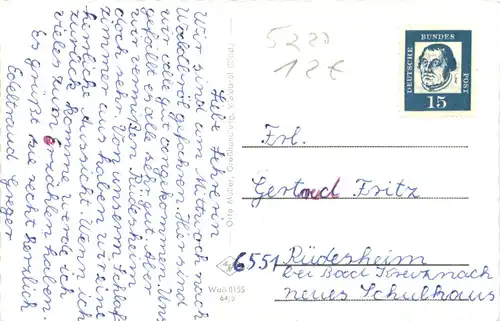 Liebe Lehrerin
Wir sind am Mittwoch nach
Waldbröl gefahren. Hier sind
wir alle gut angekommen. Uns
gefällt es alle sehr gut. Aber
wir vermißen Rüdesheim
doch sehr. Von unserem Schlaf
aus haben wir eine
herrliche Aussicht. Wenn ich
zurück komme werde ich
vieles zum erzählen haben.
Es grüße sie recht herzlich
Edeltraud Greger
Otto Müller, Großfundung, Waldbröl
Wald 0155
5220
12€
DEUTSCHE BUNDES POST
15
Frl.
Gertrud Fritz
6551 Rüdesheim
bei Bad Kreuznach
neues Schulhaus